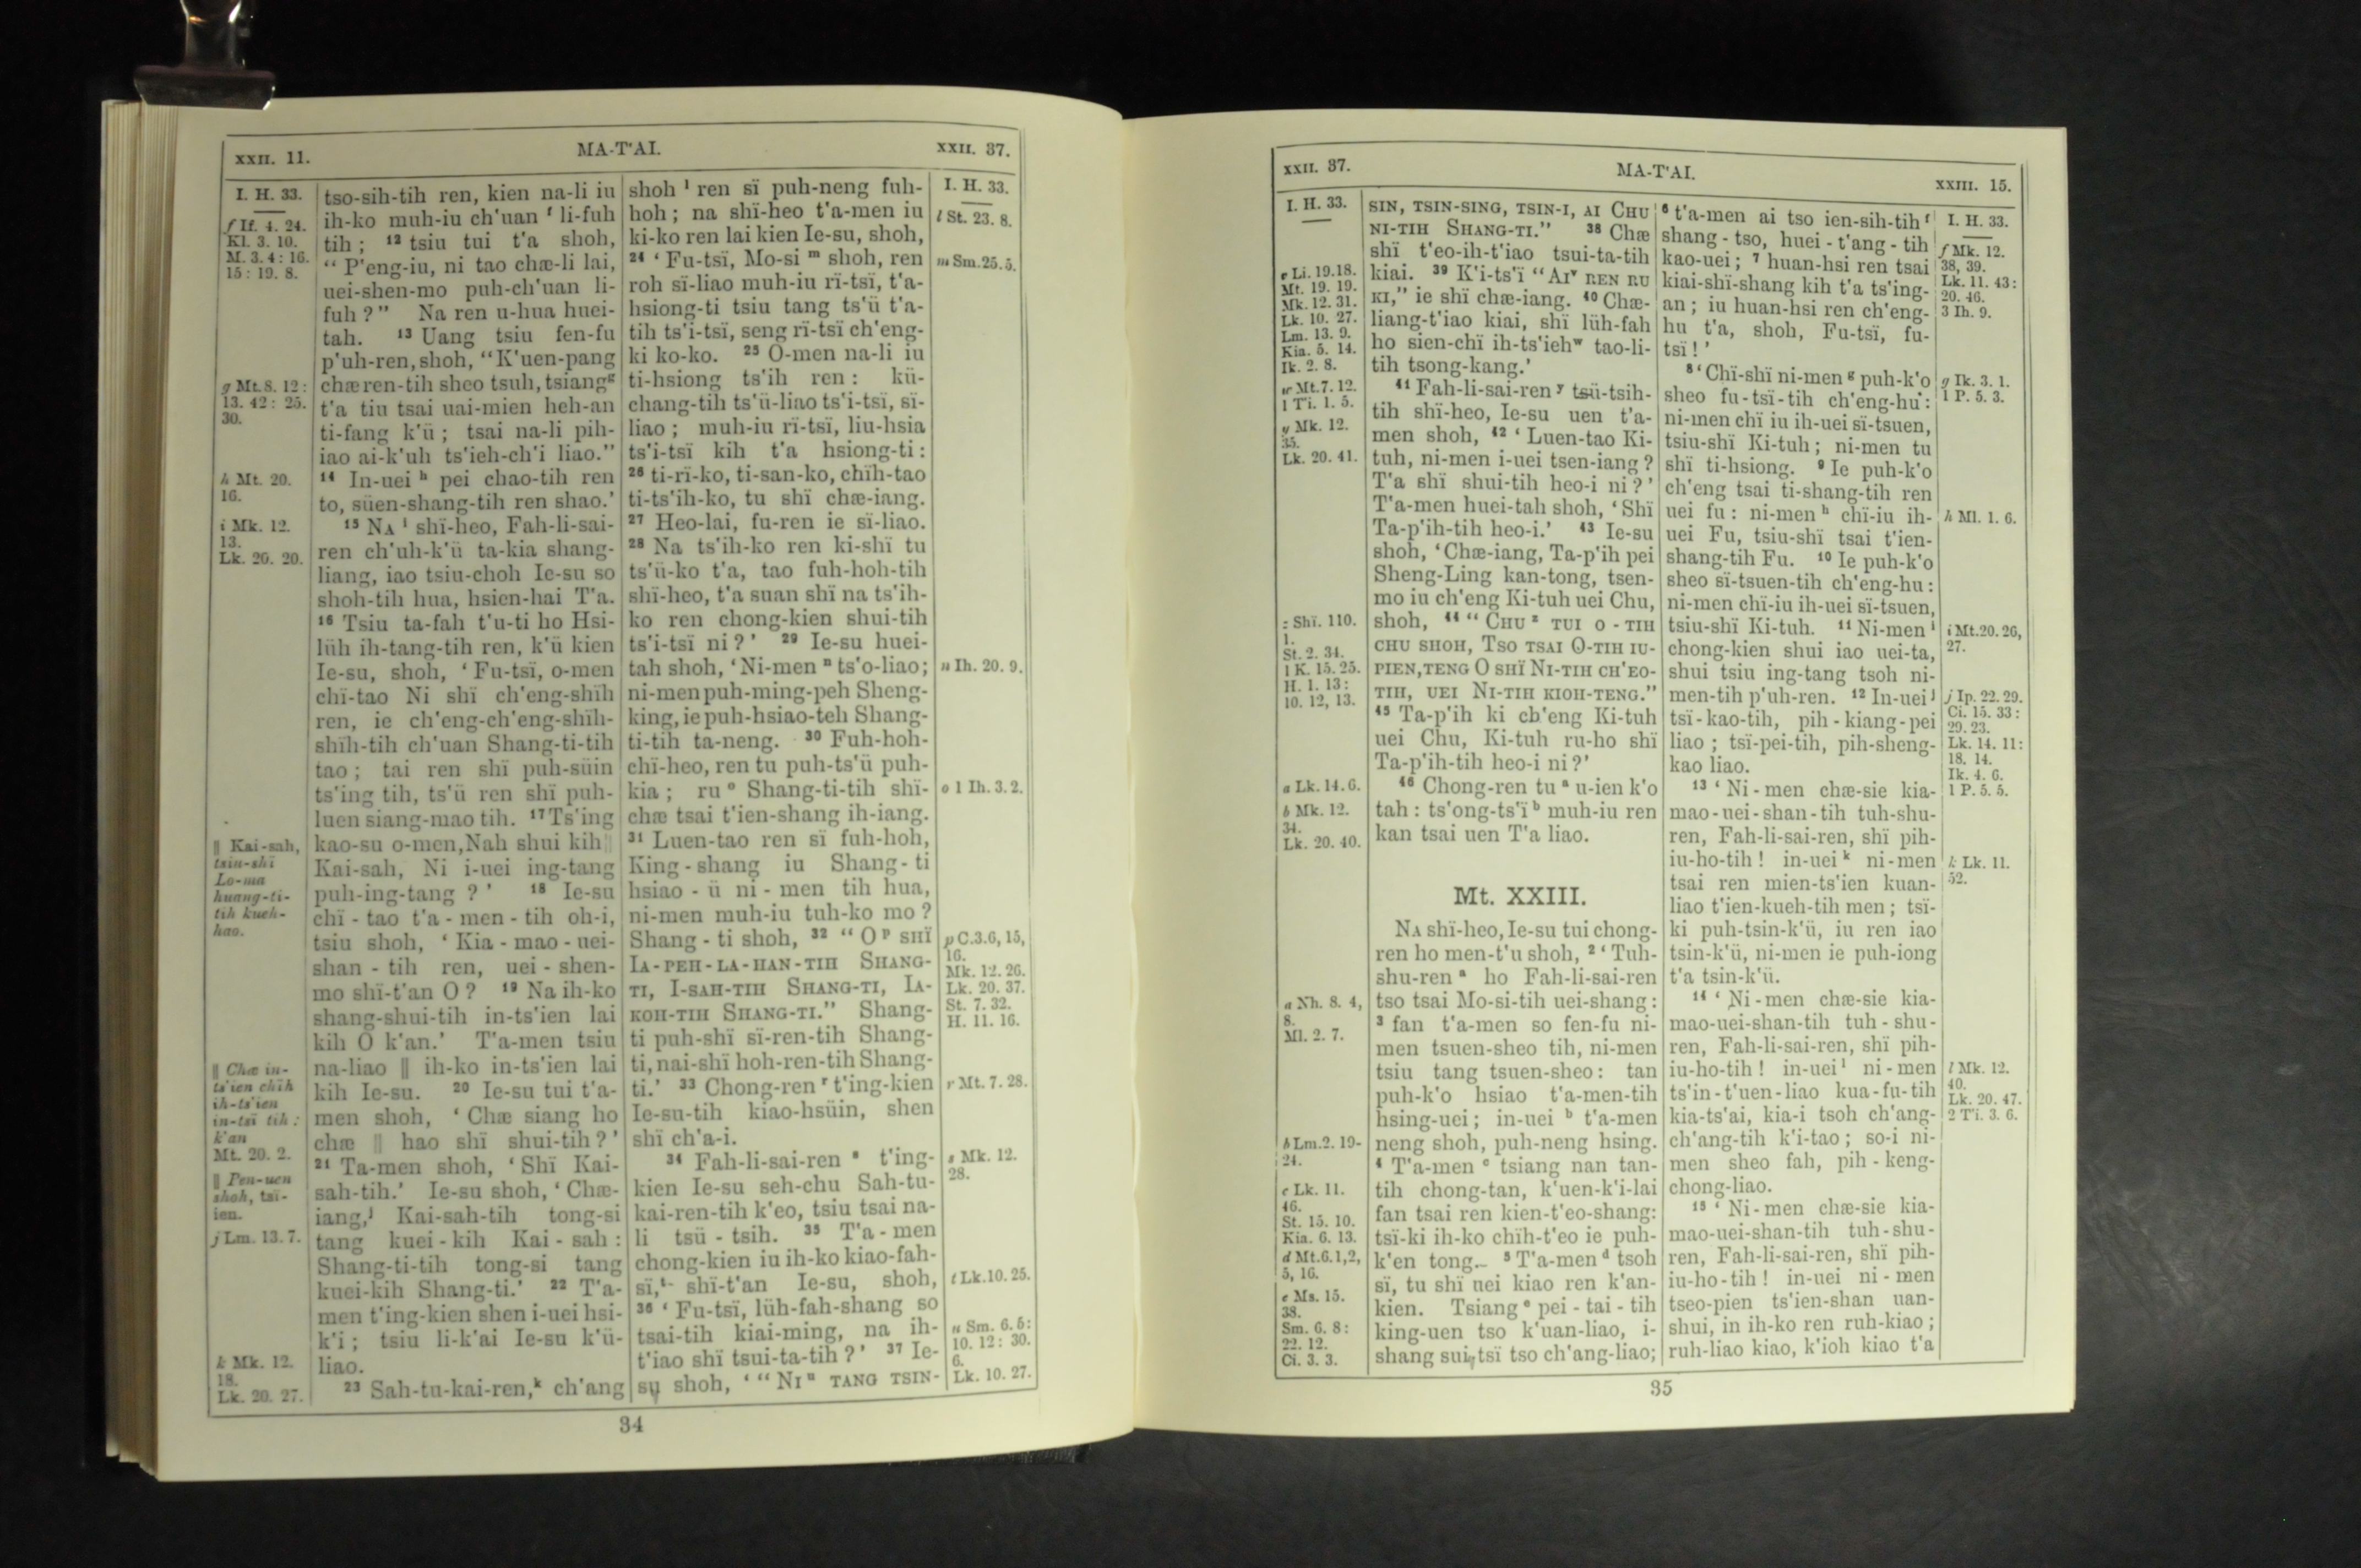 XXII. 11.
MA-T'AI.
XXII. 37.
I. H. 33.
f If. 4. 24.
Kl. 3. 10.
M. 3. 4: 16.
15: 19. 8.
g Mt. 8. 12:
13. 42: 25.
30.
h Mt. 20.
16.
i Mk. 12.
13.
Lk. 20. 20.
‖ Kai-sah,
tsiu-shï
Lo-ma
huang-ti-
tih kueh-
hao.
‖ Chæ in-
ts'ien chïh
ih-ts'ien
in-tsï tih:
k'an
Mt. 20. 2.
‖ Pen-uen
shoh, tsï-
ien.
j Lm. 13. 7.
k Mk. 12.
18.
Lk. 20. 27.
tso-sih-tih ren, kien na-li iu
ih-ko muh-iu ch'uan f li-fuh
tih; 12 tsiu tui t'a shoh,
“ P'eng-iu, ni tao chæ-li lai,
uei-shen-mo puh-ch'uan li-
fuh?” Na ren u-hua huei-
tah. 13 Uang tsiu fen-fu
p'uh-ren, shoh, “K'uen-pang
chæ ren-tih sheo tsuh, tsiang g
t'a tiu tsai uai-mien heh-an
ti-fang k'ü; tsai na-li pih-
iao ai-k'uh ts'ieh-ch'i liao.”
14 In-uei h pei chao-tih ren
to, süen-shang-tih ren shao.'
15 NA i shï-heo, Fah-li-sai-
ren ch'uh-k'ü ta-kia shang-
liang, iao tsiu-choh Ie-su so
shoh-tih hua, hsien-hai T'a.
16 Tsiu ta-fah t'u-ti ho Hsi-
lüh ih-tang-tih ren, k'ü kien
Ie-su, shoh, ‘Fu-tsï, o-men
chï-tao Ni shï ch'eng-shïh
ren, ie ch'eng-ch'eng-shïh-
shïh-tih ch'uan Shang-ti-tih
tao; tai ren shï puh-süin
ts'ing tih, ts'ü ren shï puh-
luen siang-mao tih. 17 Ts'ing
kao-su o-men, Nah shui kih ‖
Kai-sah, Ni i-uei ing-tang
puh-ing-tang?’ 18 Ie-su
chï-tao t'a-men-tih oh-i,
tsiu shoh, ‘Kia-mao-uei-
shan-tih ren, uei-shen-
mo shï-t'an O? 19 Na ih-ko
shang-shui-tih in-ts'ien lai
kih O k'an.’ T'a-men tsiu
na-liao ‖ ih-ko in-ts'ien lai
kih Ie-su. 20 Ie-su tui t'a-
men shoh, ‘Chæ siang ho
chæ ‖ hao shï shui-tih?’
21 Ta-men shoh, ‘Shï Kai-
sah-tih.’ Ie-su shoh, ‘Chæ-
iang, j Kai-sah-tih tong-si
tang kuei-kih Kai-sah:
Shang-ti-tih tong-si tang
kuei-kih Shang-ti.’ 22 T'a-
men t'ing-kien shen i-uei hsi-
k'i; tsiu li-k'ai Ie-su k'ü-
liao.
23 Sah-tu-kai-ren, k ch'ang
shoh l ren sï puh-neng fuh-
hoh; na shï-heo t'a-men iu
ki-ko ren lai kien Ie-su, shoh,
24 ‘Fu-tsï, Mo-si m shoh, ren
roh sï-liao muh-iu rï-tsï, t'a-
hsiong-ti tsiu tang ts'ü t'a-
tih ts'i-tsï, seng rï-tsï ch'eng-
ki ko-ko. 25 O-men na-li iu
ti-hsiong ts'ih ren: kü-
chang-tih ts'ü-liao ts'i-tsï, sï-
liao; muh-iu rï-tsï, liu-hsia
ts'i-tsï kih t'a hsiong-ti:
26 ti-rï-ko, ti-san-ko, chïh-tao
ti-ts'ih-ko, tu shï chæ-iang.
27 Heo-lai, fu-ren ie sï-liao.
28 Na ts'ih-ko ren ki-shï tu
ts'ü-ko t'a, tao fuh-hoh-tih
shï-heo, t'a suan shï na ts'ih-
ko ren chong-kien shui-tih
ts'i-tsï ni?’ 29 Ie-su huei-
tah shoh, ‘Ni-men n ts'o-liao;
ni-men puh-ming-peh Sheng-
king, ie puh-hsiao-teh Shang-
ti-tih ta-neng. 30 Fuh-hoh-
chï-heo, ren tu puh-ts'ü puh-
kia; ru o Shang-ti-tih shï-
chæ tsai t'ien-shang ih-iang.
31 Luen-tao ren sï fuh-hoh,
King-shang iu Shang-ti
hsiao-ü ni-men tih hua,
ni-men muh-iu tuh-ko mo?
Shang-ti shoh, 32 “O p SHÏ
IA-PEH-LA-HAN-TIH SHANG-
TI, I-SAH-TIH SHANG-TI, IA-
KOH-TIH SHANG-TI.” Shang-
ti puh-shï sï-ren-tih Shang-
ti, nai-shï hoh-ren-tih Shang-
ti.’ 33 Chong-ren r t'ing-kien
Ie-su-tih kiao-hsüin, shen
shï ch'a-i.
34 Fah-li-sai-ren s t'ing-
kien Ie-su seh-chu Sah-tu-
kai-ren-tih k'eo, tsiu tsai na-
li tsü-tsih. 35 T'a-men
chong-kien iu ih-ko kiao-fah-
sï, t shï-t'an Ie-su, shoh,
36 ‘Fu-tsï, lüh-fah-shang so
tsai-tih kiai-ming, na ih-
t'iao shï tsui-ta-tih?’ 37 Ie-
su shoh, ‘“NI u TANG TSIN-
I. H. 33.
l St. 23. 8.
m Sm. 25. 5.
n Ih. 20. 9.
o 1 Ih. 3. 2.
p C. 3. 6, 15,
16.
Mk. 12. 26.
Lk. 20. 37.
St. 7. 32.
H. 11. 16.
r Mt. 7. 28.
s Mk. 12.
28.
t Lk. 10. 25.
u Sm. 6. 5:
10. 12: 30.
6.
Lk. 10. 27.
34
XXII. 37.
MA-T'AI.
XXIII. 15.
I. H. 33.
v Li. 19. 18.
Mt. 19. 19.
Mk. 12. 31.
Lk. 10. 27.
Lm. 13. 9.
Kia. 5. 14.
Ik. 2. 8.
w Mt. 7. 12.
1 Ti. 1. 5.
y Mk. 12.
35.
Lk. 20. 41.
z Shï. 110.
1.
St. 2. 34.
1 K. 15. 25.
H. 1. 13:
10. 12, 13.
a Lk. 14. 6.
b Mk. 12.
34.
Lk. 20. 40.
a Nh. 8. 4,
8.
Ml. 2. 7.
b Lm. 2. 19-
24.
c Lk. 11.
46.
St. 15. 10.
Kia. 6. 13.
d Mt. 6. 1, 2,
5, 16.
e Ms. 15.
38.
Sm. 6. 8:
22. 12.
Ci. 3. 3.
SIN, TSIN-SING, TSIN-I, AI CHU
NI-TIH SHANG-TI.” 38 Chæ
shï t'eo-ih-t'iao tsui-ta-tih
kiai. 39 K'i-ts'ï “AI v REN RU
KI,” ie shï chæ-iang. 40 Chæ-
liang-t'iao kiai, shï lüh-fah
ho sien-chï ih-ts'ieh w tao-li-
tih tsong-kang.’
41 Fah-li-sai-ren y tsü-tsih-
tih shï-heo, Ie-su uen t'a-
men shoh, 42 ‘Luen-tao Ki-
tuh, ni-men i-uei tsen-iang?
T'a shï shui-tih heo-i ni?’
T'a-men huei-tah shoh, ‘Shï
Ta-p'ih-tih heo-i.’ 43 Ie-su
shoh, ‘Chæ-iang, Ta-p'ih pei
Sheng-Ling kan-tong, tsen-
mo iu ch'eng Ki-tuh uei Chu,
shoh, 44 “CHU z TUI O-TIH
CHU SHOH, TSO TSAI O-TIH IU-
PIEN, TENG O SHÏ NI-TIH CH'EO-
TIH, UEI NI-TIH KIOH-TENG.”
45 Ta-p'ih ki ch'eng Ki-tuh
uei Chu, Ki-tuh ru-ho shï
Ta-p'ih-tih heo-i ni?’
46 Chong-ren tu a u-ien k'o
tah: ts'ong-ts'ï b muh-iu ren
kan tsai uen T'a liao.
Mt. XXIII.
NA shï-heo, Ie-su tui chong-
ren ho men-t'u shoh, 2 ‘Tuh-
shu-ren a ho Fah-li-sai-ren
tso tsai Mo-si-tih uei-shang:
3 fan t'a-men so fen-fu ni-
men tsuen-sheo tih, ni-men
tsiu tang tsuen-sheo: tan
puh-k'o hsiao t'a-men-tih
hsing-uei; in-uei b t'a-men
neng shoh, puh-neng hsing.
4 T'a-men c tsiang nan tan-
tih chong-tan, k'uen-k'i-lai
fan tsai ren kien-t'eo-shang:
tsï-ki ih-ko chïh-t'eo ie puh-
k'en tong. 5 T'a-men d tsoh
sï, tu shï uei kiao ren k'an-
kien. Tsiang e pei-tai-tih
king-uen tso k'uan-liao, i-
shang sui-tsï tso ch'ang-liao;
6 t'a-men ai tso ien-sih-tih f
shang-tso, huei-t'ang-tih
kao-uei; 7 huan-hsi ren tsai
kiai-shï-shang kih t'a ts'ing-
an; iu huan-hsi ren ch'eng-
hu t'a, shoh, Fu-tsï, fu-
tsï!’
8 ‘Chï-shï ni-men g puh-k'o
sheo fu-tsï-tih ch'eng-hu:
ni-men chï iu ih-uei sï-tsuen,
tsiu-shï Ki-tuh; ni-men tu
shï ti-hsiong. 9 Ie puh-k'o
ch'eng tsai ti-shang-tih ren
uei fu: ni-men h chï-iu ih-
uei Fu, tsiu-shï tsai t'ien-
shang-tih Fu. 10 Ie puh-k'o
sheo sï-tsuen-tih ch'eng-hu:
ni-men chï-iu ih-uei sï-tsuen,
tsiu-shï Ki-tuh. 11 Ni-men i
chong-kien shui iao uei-ta,
shui tsiu ing-tang tsoh ni-
men-tih p'uh-ren. 12 In-uei j
tsï-kao-tih, pih-kiang-pei
liao; tsï-pei-tih, pih-sheng-
kao liao.
13 ‘Ni-men chæ-sie kia-
mao-uei-shan-tih tuh-shu-
ren, Fah-li-sai-ren, shï pih-
iu-ho-tih! in-uei k ni-men
tsai ren mien-ts'ien kuan-
liao t'ien-kueh-tih men; tsï-
ki puh-tsin-k'ü, iu ren iao
tsin-k'ü, ni-men ie puh-iong
t'a tsin-k'ü.
14 ‘Ni-men chæ-sie kia-
mao-uei-shan-tih tuh-shu-
ren, Fah-li-sai-ren, shï pih-
iu-ho-tih! in-uei l ni-men
ts'in-t'uen-liao kua-fu-tih
kia-ts'ai, kia-i tsoh ch'ang-
ch'ang-tih k'i-tao; so-i ni-
men sheo fah, pih-keng-
chong-liao.
15 ‘Ni-men chæ-sie kia-
mao-uei-shan-tih tuh-shu-
ren, Fah-li-sai-ren, shï pih-
iu-ho-tih! in-uei ni-men
tseo-pien ts'ien-shan uan-
shui, in ih-ko ren ruh-kiao;
ruh-liao kiao, k'ioh kiao t'a
I. H. 33.
f Mk. 12.
38, 39.
Lk. 11. 43:
20. 46.
3 Ih. 9.
g Ik. 3. 1.
1 P. 5. 3.
h Ml. 1. 6.
i Mt. 20. 26,
27.
j Ip. 22. 29.
Ci. 15. 33:
29. 23.
Lk. 14. 11:
18. 14.
Ik. 4. 6.
1 P. 5. 5.
k Lk. 11.
52.
l Mk. 12.
40.
Lk. 20. 47.
2 T'i. 3. 6.
35